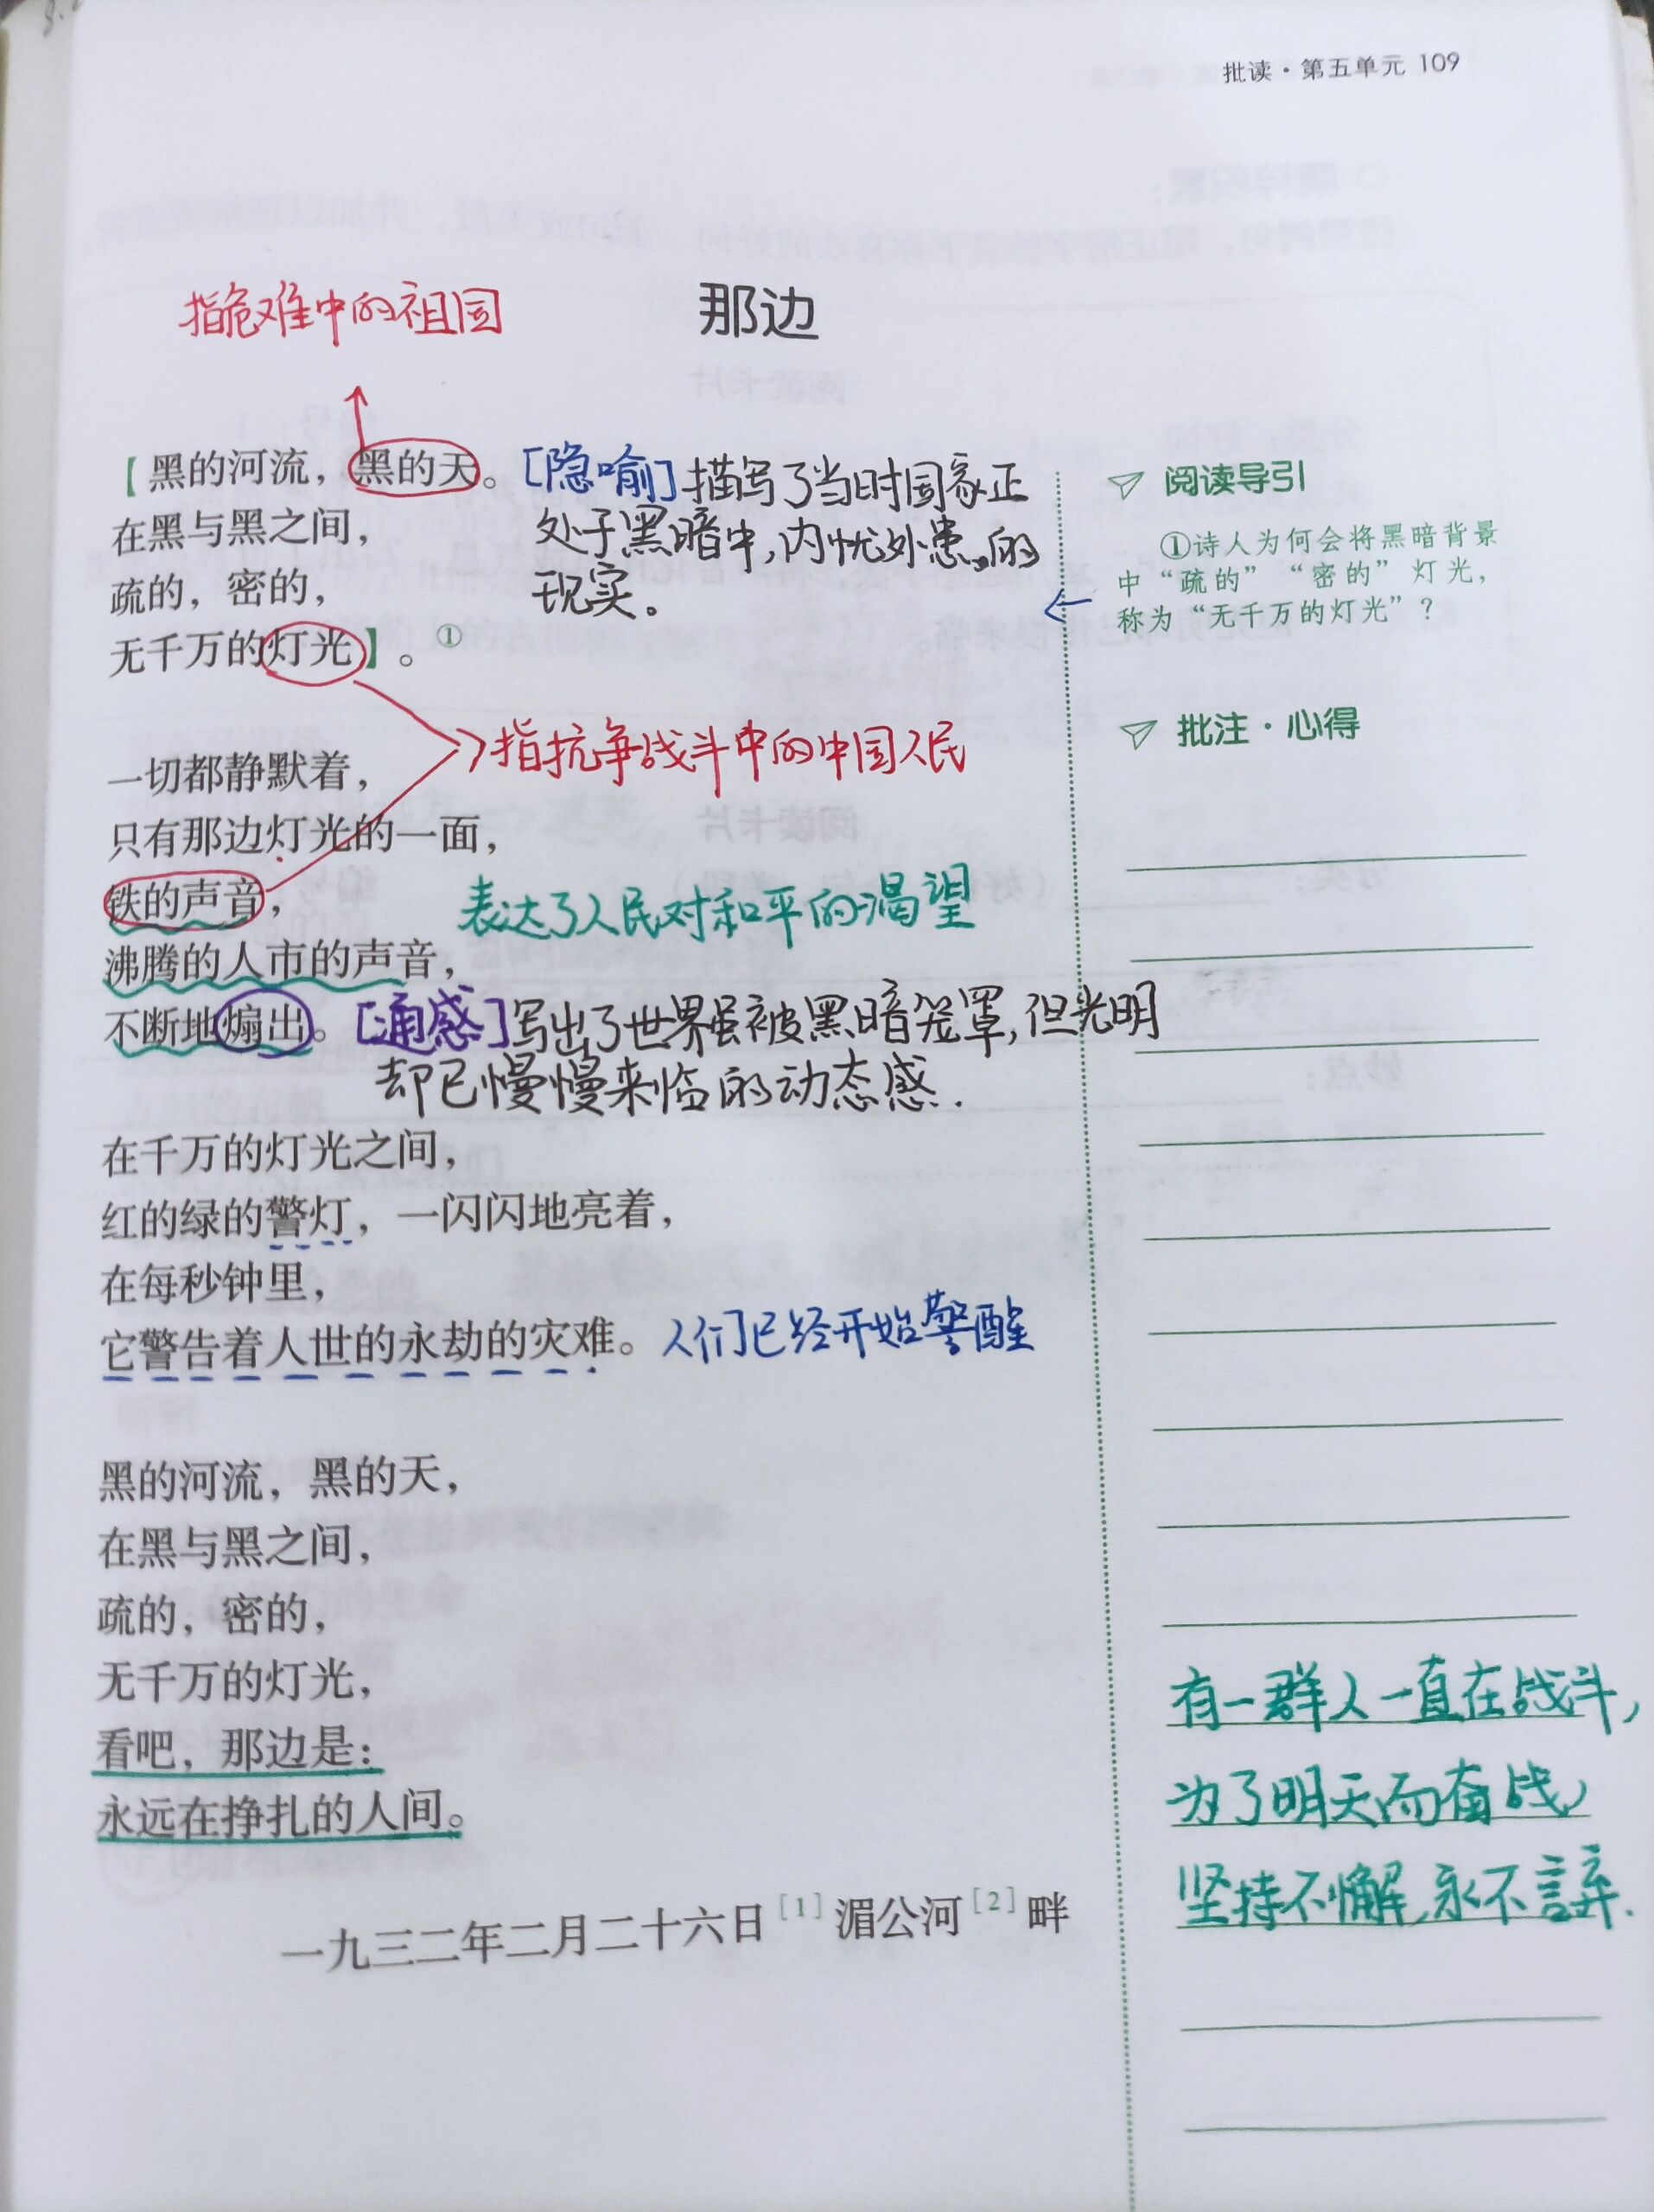 批读·第五单元 109
指危难中的祖国
那边
【黑的河流，黑的天。
[隐喻]描写了当时国家正
处于黑暗中,内忧外患的
现实。
在黑与黑之间，
疏的，密的，
无千万的灯光】。①
阅读导引
①诗人为何会将黑暗背景
中“疏的”“密的”灯光，
称为“无千万的灯光”？
指抗争战斗中的中国人民
批注·心得
一切都静默着，
只有那边灯光的一面，
铁的声音，
表达了人民对和平的渴望
沸腾的人市的声音，
不断地煽出。
[通感]写出了世界虽被黑暗笼罩,但光明
却已慢慢来临的动态感.
在千万的灯光之间，
红的绿的警灯，一闪闪地亮着，
在每秒钟里，
它警告着人世的永劫的灾难。
人们已经开始警醒
黑的河流，黑的天，
在黑与黑之间，
疏的，密的，
无千万的灯光，
看吧，那边是：
永远在挣扎的人间。
有一群人一直在战斗,
为了明天而奋战,
坚持不懈,永不言弃.
一九三二年二月二十六日[1]湄公河[2]畔